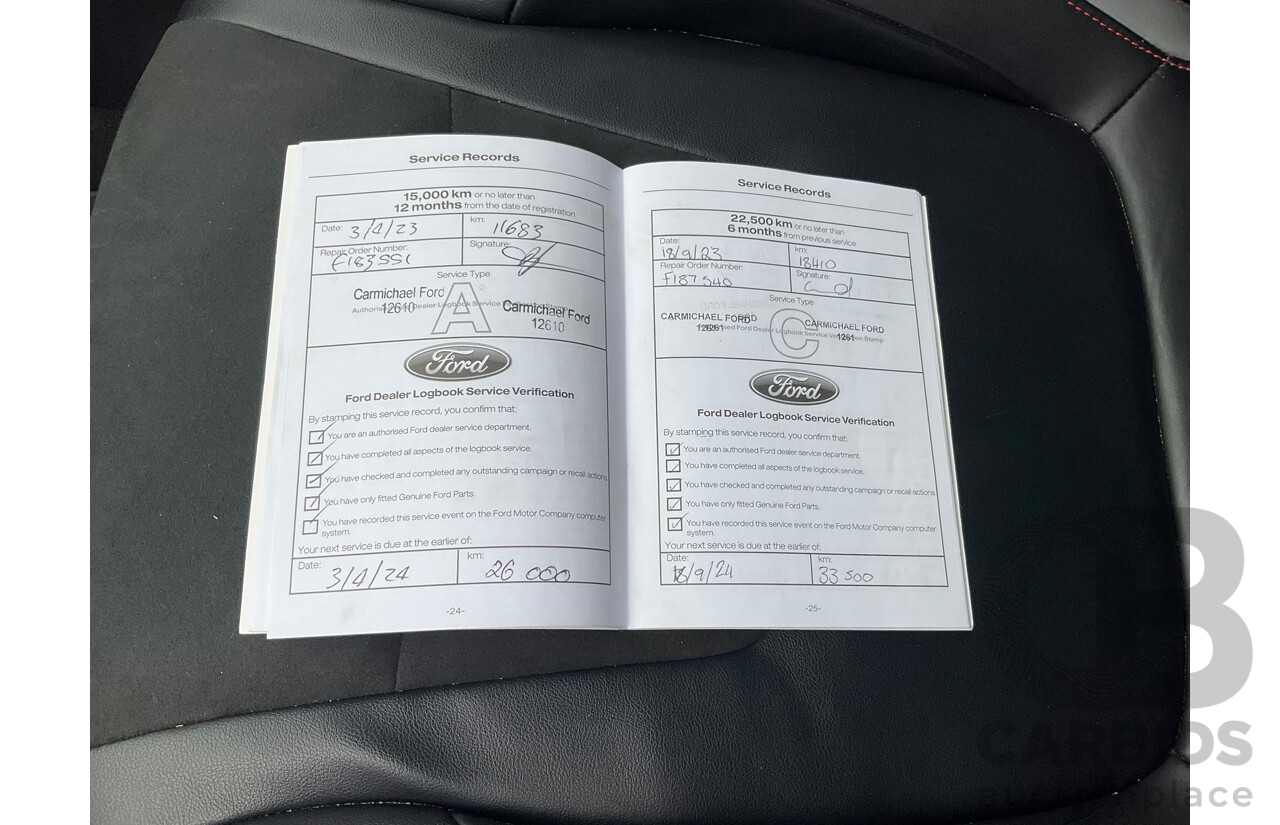 Service Records
15,000 km or no later than
12 months from the date of registration
Date: 3/4/23
km: 11683
Repair Order Number: F183551
Signature:
Service Type
A
Carmichael Ford
12610
Authorised Ford Dealer Logbook Service Verification Stamp
Carmichael Ford
12610
Ford
Ford Dealer Logbook Service Verification
By stamping this service record, you confirm that:
You are an authorised Ford dealer service department.
You have completed all aspects of the logbook service.
You have checked and completed any outstanding campaign or recall actions
You have only fitted Genuine Ford Parts.
You have recorded this service event on the Ford Motor Company computer
system.
Your next service is due at the earlier of:
Date: 3/4/24
km: 26 000
-24-
Service Records
22,500 km or no later than
6 months from previous service
Date: 18/9/23
km: 18410
Repair Order Number: F187540
Signature:
Service Type
C
CARMICHAEL FORD
Authorised Ford Dealer Logbook Service Verification Stamp
CARMICHAEL FORD
1261
Ford
Ford Dealer Logbook Service Verification
By stamping this service record, you confirm that:
You are an authorised Ford dealer service department.
You have completed all aspects of the logbook service.
You have checked and completed any outstanding campaign or recall actions
You have only fitted Genuine Ford Parts.
You have recorded this service event on the Ford Motor Company computer
system.
Your next service is due at the earlier of:
Date: 18/9/24
km: 33 500
-25-
CARBIDS